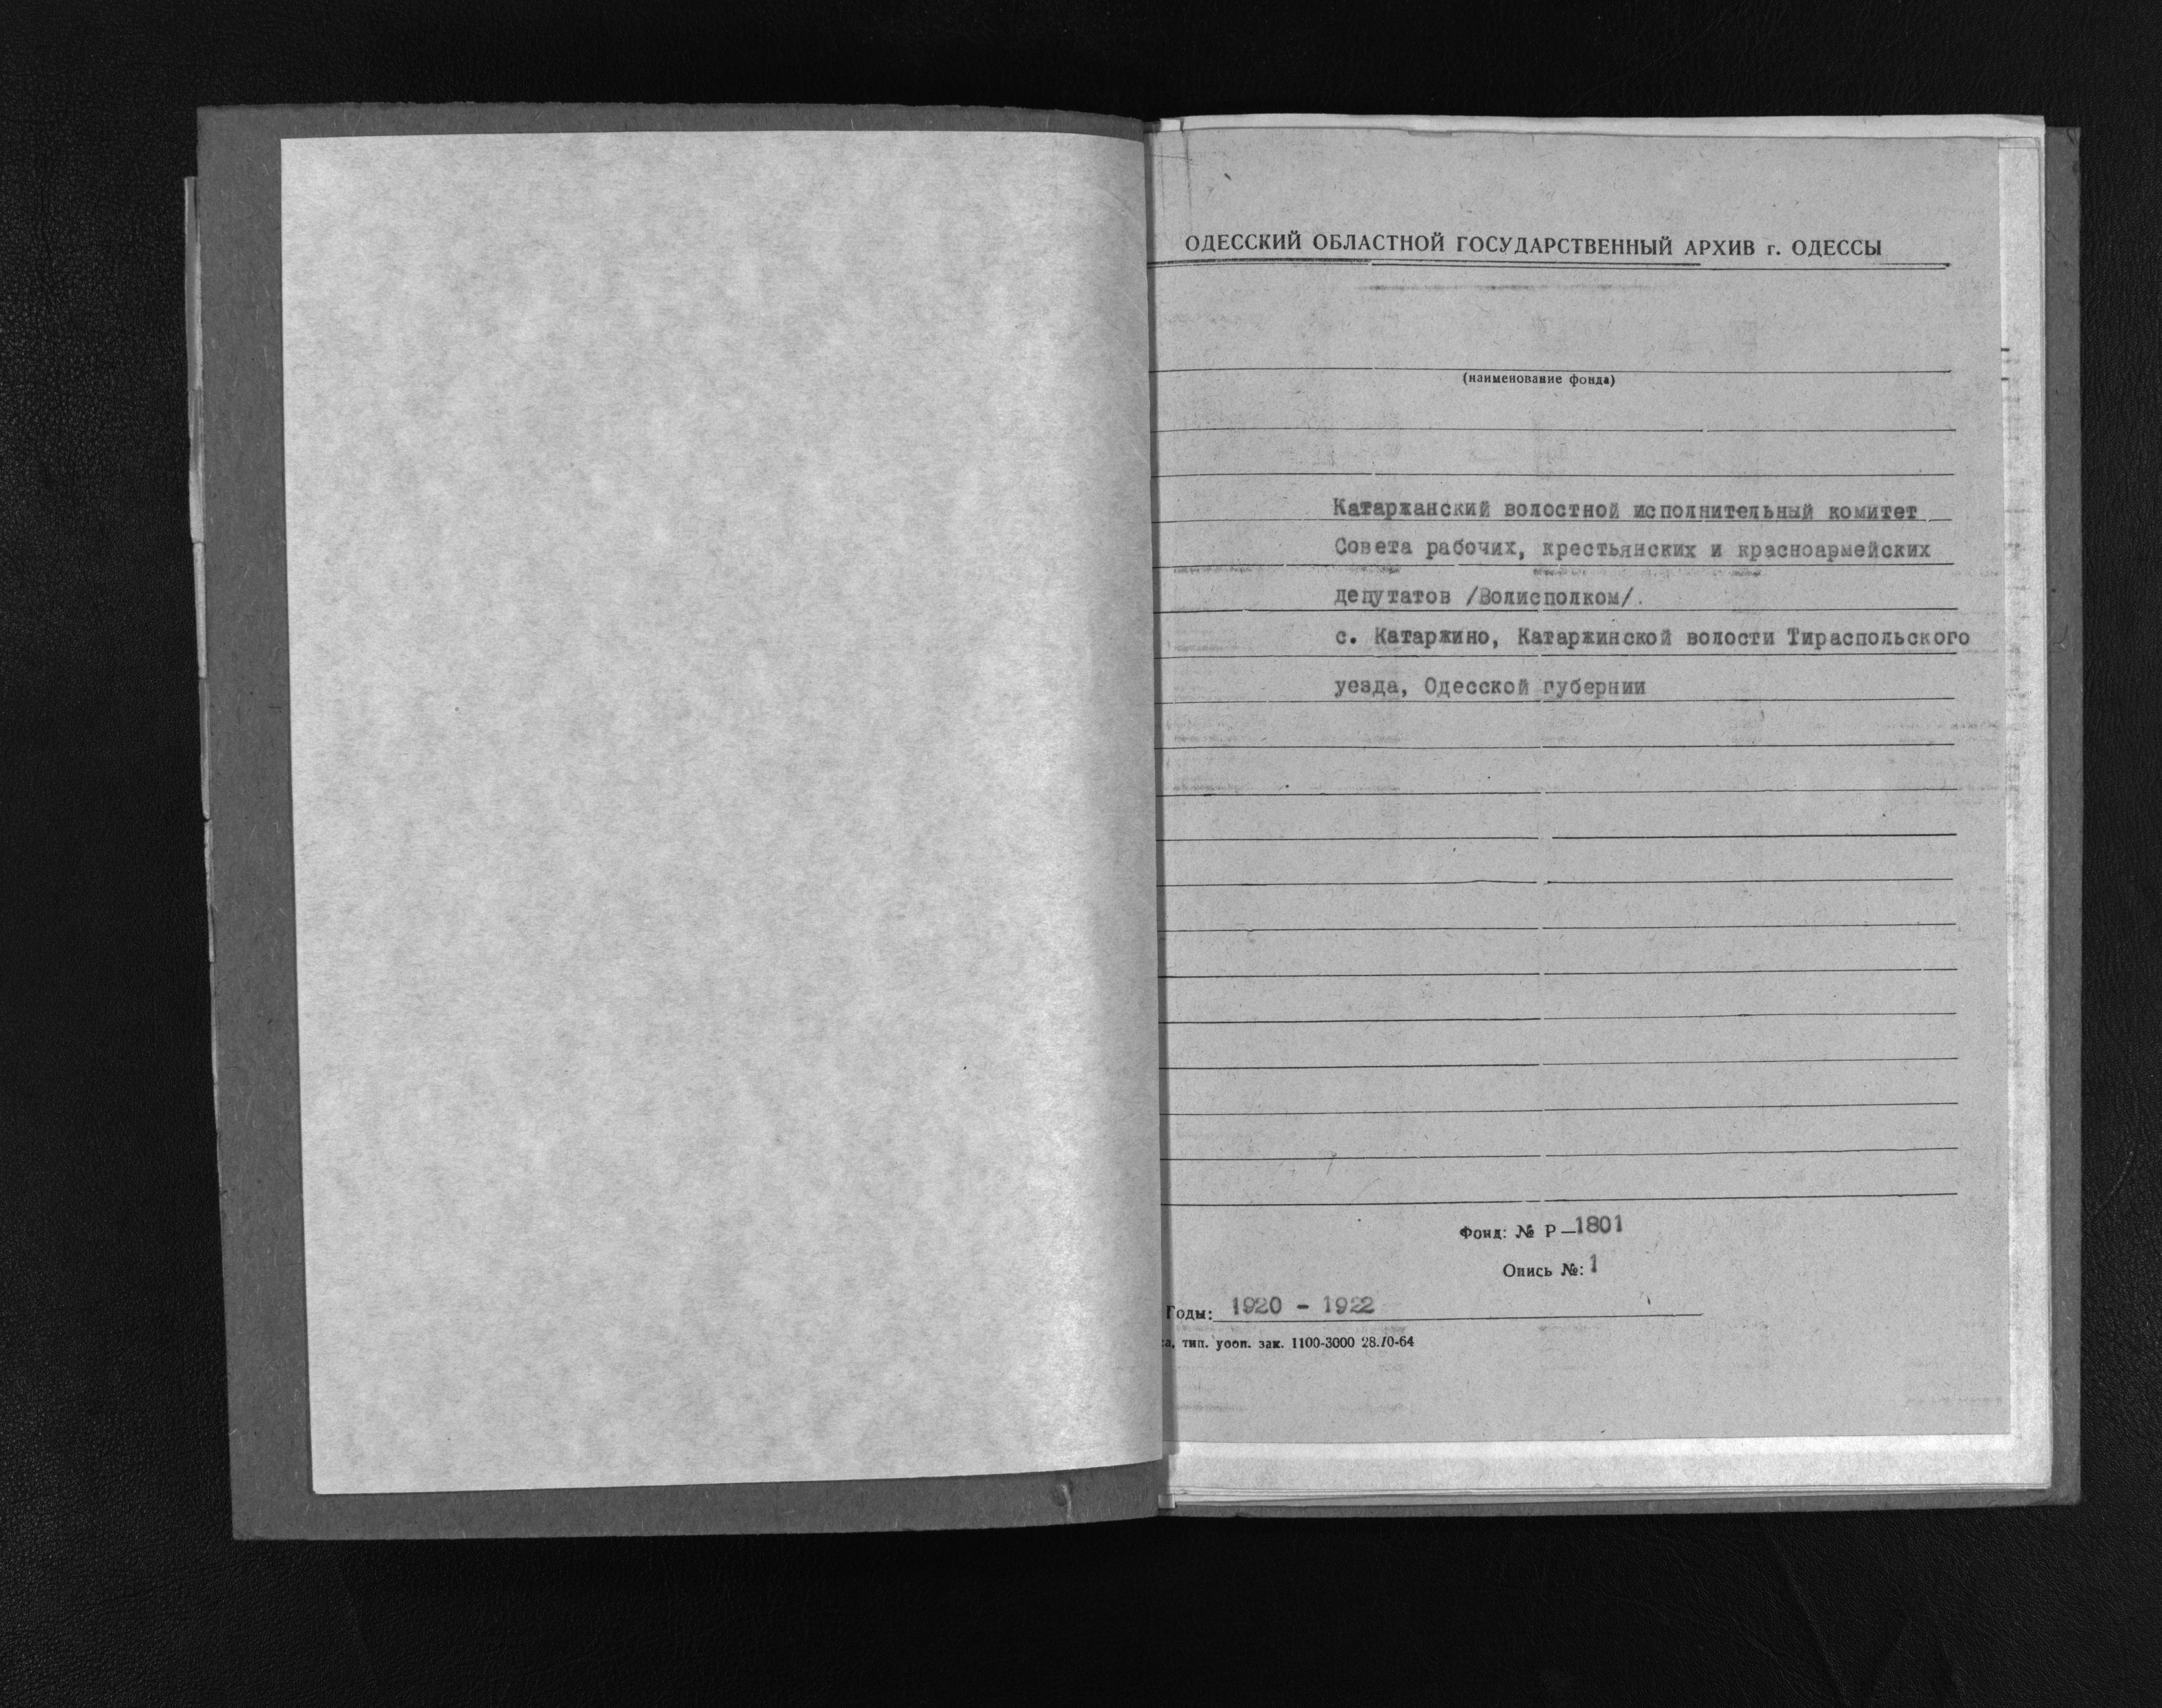 ОДЕССКИЙ ОБЛАСТНОЙ ГОСУДАРСТВЕННЫЙ АРХИВ г. ОДЕССЫ
(наименование фонда)
Катаржанский волостной исполнительный комитет
Совета рабочих, крестьянских и красноармейских
депутатов /Волисполком/.
с. Катаржино, Катаржинской волости Тираспольского
уезда, Одесской губернии
Фонд: № Р—1801
Опись №: 1
Годы: 1920 - 1922
тип. зак. 1100-3000 28.10-64